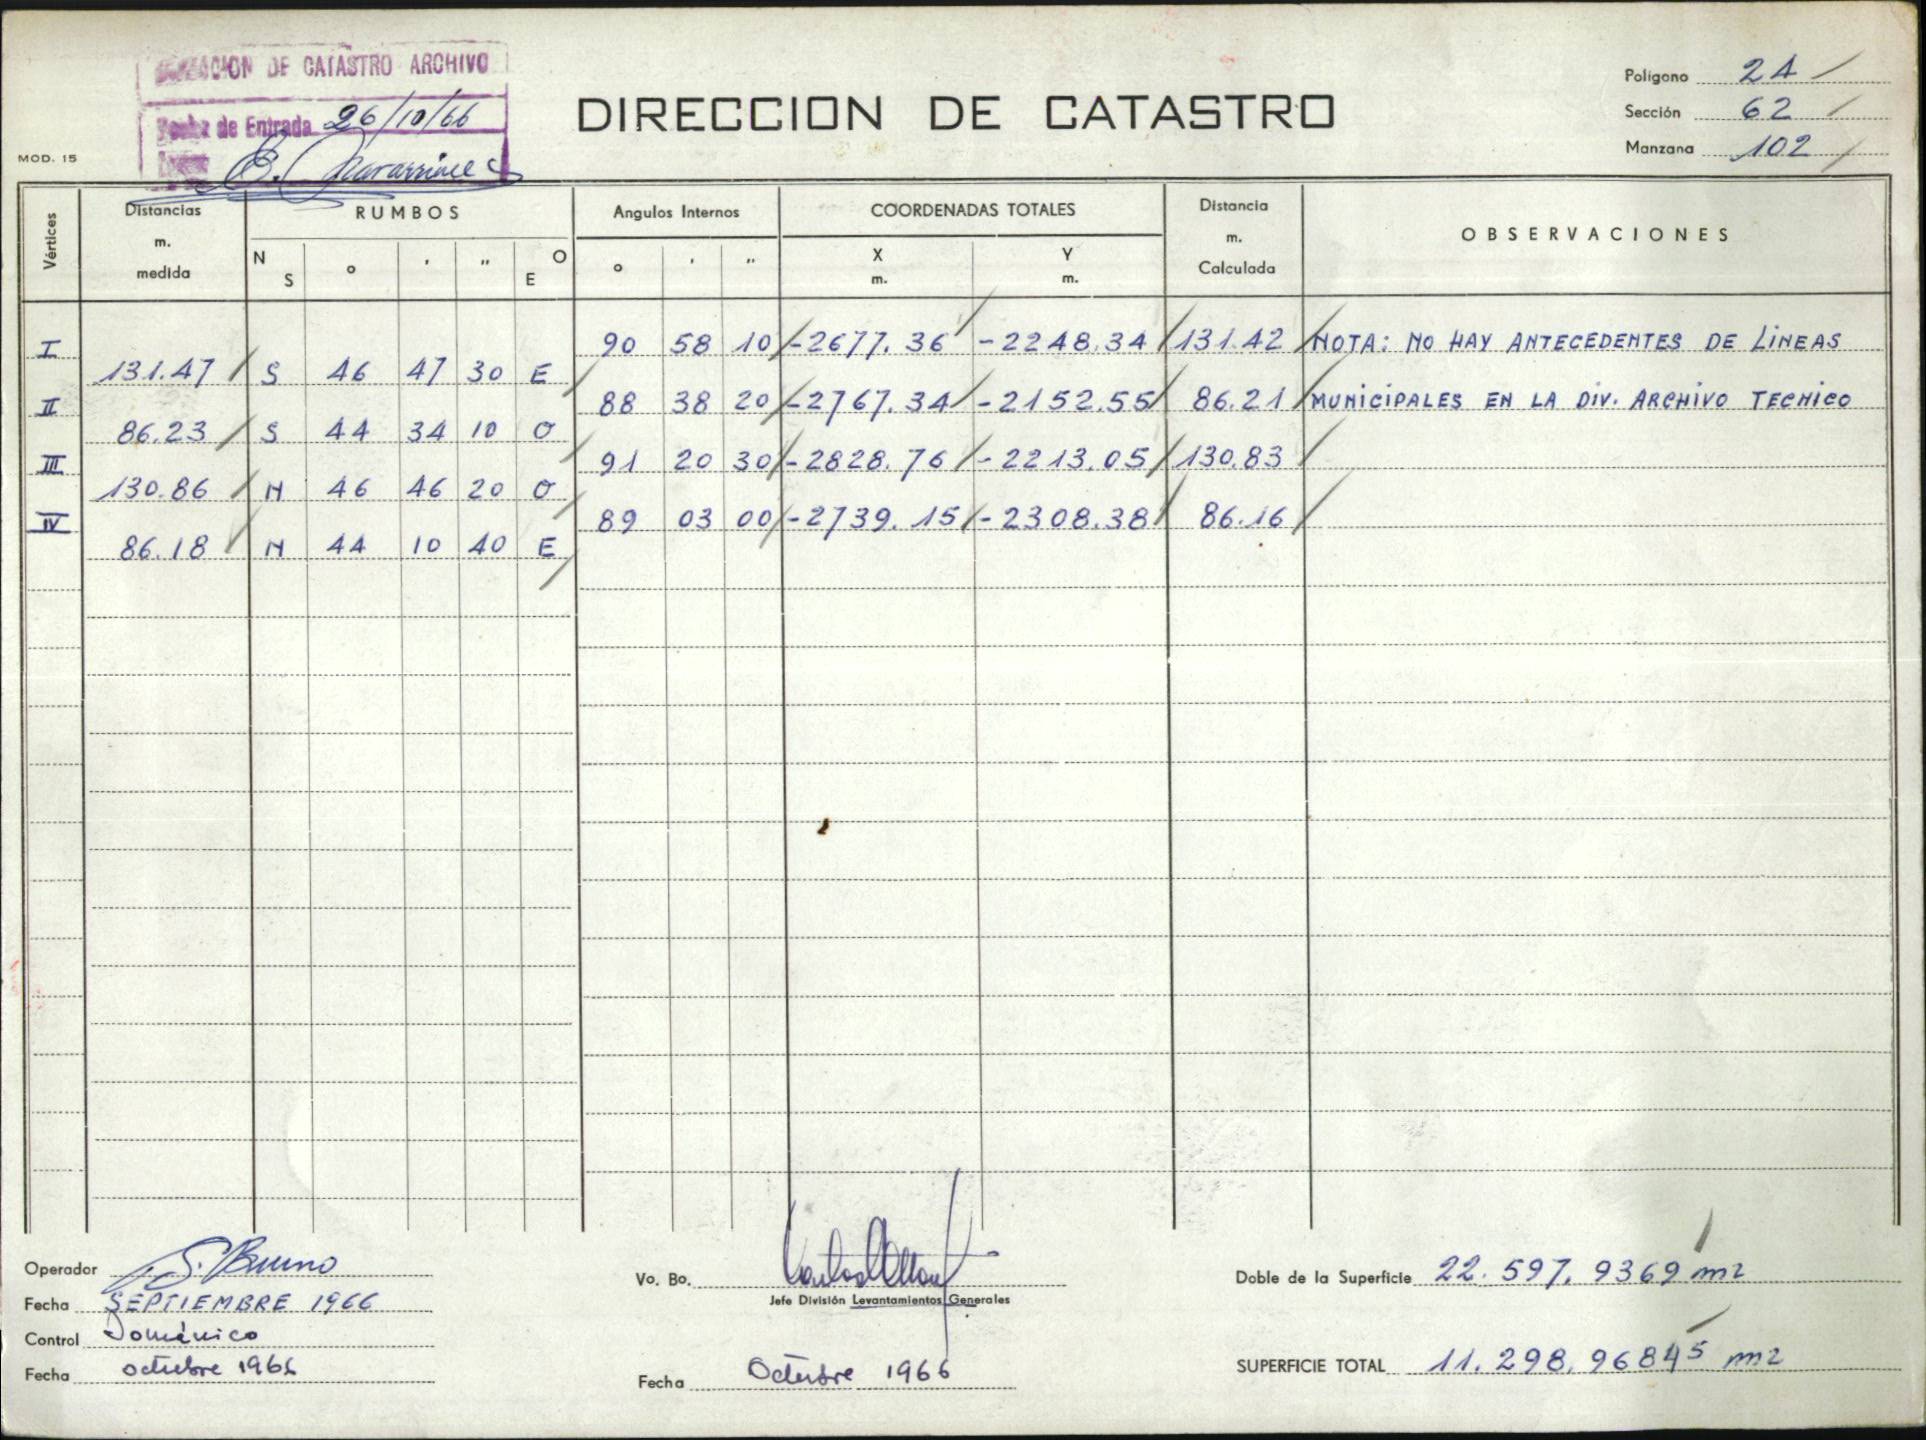 DE CATASTRO ARCHIVO
de Entrada 26/10/66
DIRECCION DE CATASTRO
Polígono 24
Sección 62
Manzana 102
MOD. 15
Vértices Distancias m. medida RUMBOS N S ° ' " O E Angulos Internos ° ' " COORDENADAS TOTALES X m. Y m. Distancia m. Calculada OBSERVACIONES
I 90 58 10 -2677.36 -2248.34 131.42 NOTA: NO HAY ANTECEDENTES DE LINEAS
131.47 S 46 47 30 E
II 88 38 20 -2767.34 -2152.55 86.21 MUNICIPALES EN LA DIV. ARCHIVO TECNICO
86.23 S 44 34 10 O
III 91 20 30 -2828.76 -2213.05 130.83
130.86 N 46 46 20 O
IV 89 03 00 -2739.15 -2308.38 86.16
86.18 N 44 10 40 E
Operador S. Bruno
Fecha SEPTIEMBRE 1966
Control Doménico
Fecha octubre 1966
Vo. Bo.
Jefe División Levantamientos Generales
Fecha Octubre 1966
Doble de la Superficie 22.597,9369 m2
SUPERFICIE TOTAL 11.298,96845 m2